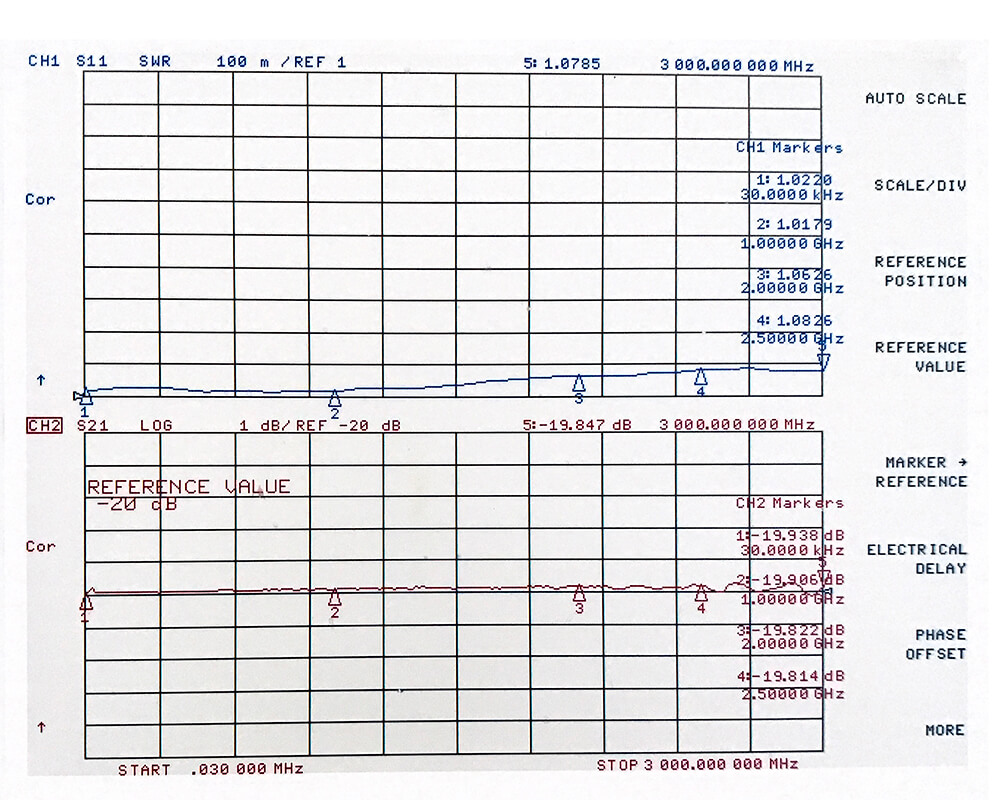 CH1 S11 SWR 100 m /REF 1 5: 1.0785 3 000.000 000 MHz
AUTO SCALE
CH1 Markers
1: 1.0220
30.0000 kHz
SCALE/DIV
Cor
2: 1.0179
1.00000 GHz
REFERENCE
POSITION
3: 1.0626
2.00000 GHz
4: 1.0826
2.50000 GHz
REFERENCE
VALUE
↑
5
1 2 3 4
CH2 S21 LOG 1 dB/ REF -20 dB 5:-19.847 dB 3 000.000 000 MHz
MARKER →
REFERENCE
REFERENCE VALUE
-20 dB
CH2 Markers
1:-19.938 dB
30.0000 kHz
Cor
ELECTRICAL
DELAY
5
2:-19.906 dB
1.00000 GHz
1 2 3 4
3:-19.822 dB
2.00000 GHz
PHASE
OFFSET
4:-19.814 dB
2.50000 GHz
↑
MORE
START .030 000 MHz STOP 3 000.000 000 MHz